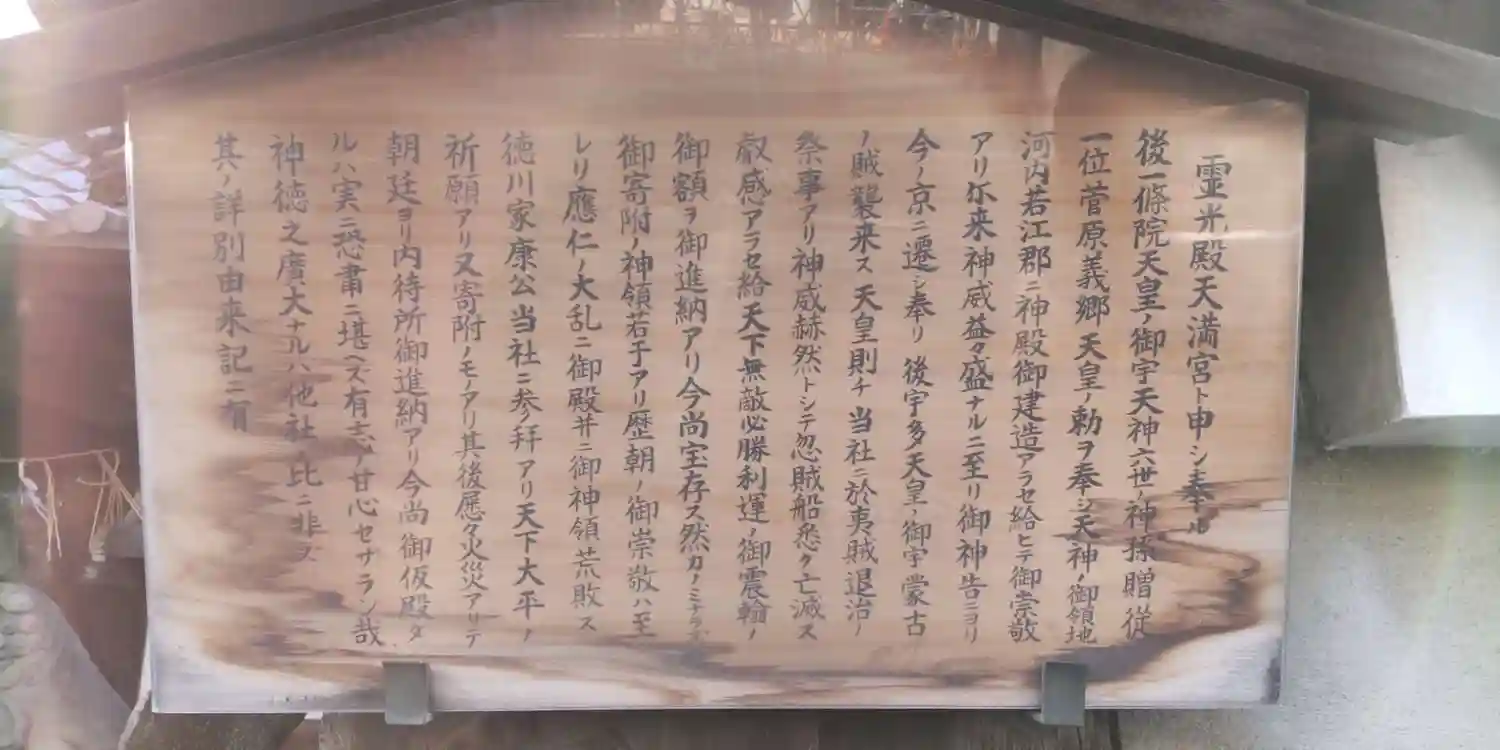 霊光殿天満宮ト申シ奉ル
後一條院天皇ノ御宇天神六世ノ神孫贈従
一位菅原義郷天皇ノ勅ヲ奉シ天神ノ御領地
河内若江郡ニ神殿御建造アラセ給ヒテ御崇敬
アリ尓来神威益々盛ナルニ至リ御神告ニヨリ
今ノ京ニ遷シ奉リ 後宇多天皇ノ御宇蒙古
ノ賊襲来ス天皇則チ当社ニ於夷賊退治ノ
祭事アリ神威赫然トシテ忽賊船悉ク亡滅ス
叡感アラセ給天下無敵必勝利運ノ御震輪ノ
御額ヲ御進納アリ今尚宝存ス然カノミナラズ
御寄附ノ神領若干アリ歴朝ノ御崇敬ハ至
レリ應仁ノ大乱ニ御殿并ニ御神領荒敗ス
徳川家康公当社ニ参拝アリ天下大平ノ
祈願アリ又寄附ノモノアリ其後歴々火災アリテ
朝廷ヨリ内待所御進納アリ今尚御仮殿タ
ルハ実ニ恐粛ニ堪ヘズ有志ノ甘心セサラン哉
神徳之廣大ナルハ他社ノ比ニ非ス
其ノ詳別由来記ニ有